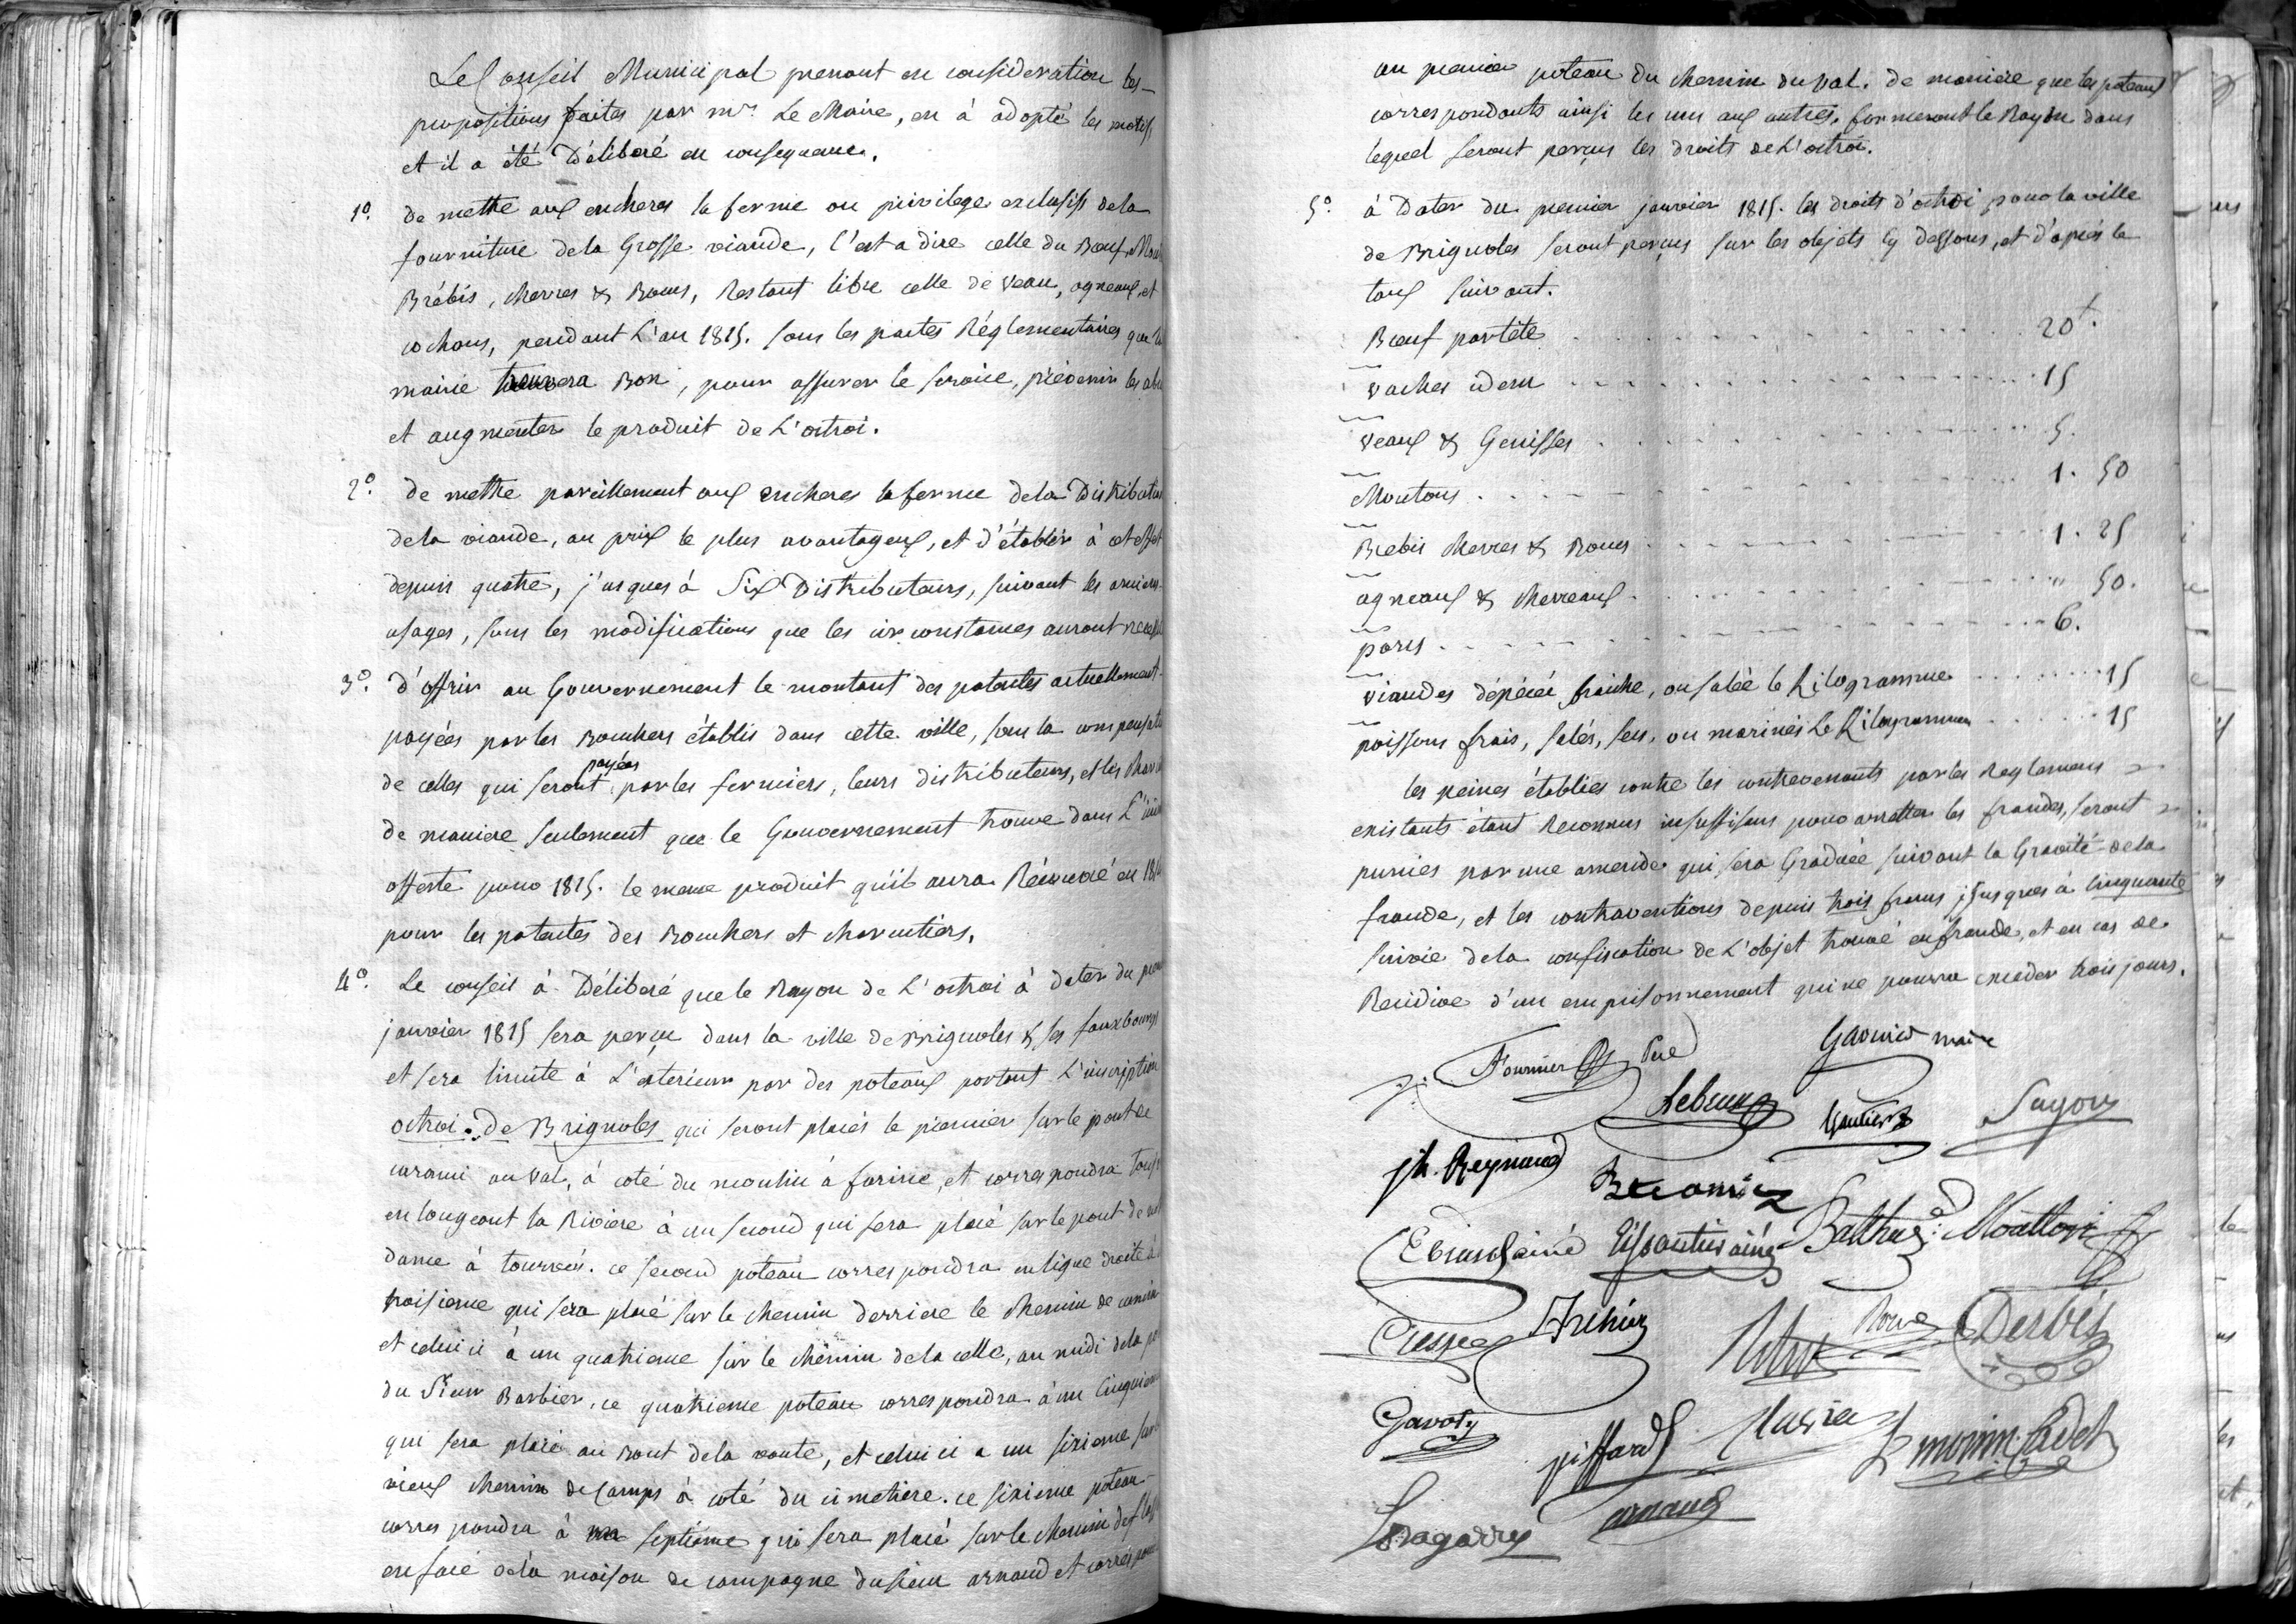 Le Conseil Municipal prenant en consideration les
propositions faites par mr. Le Maire, en à adopté les motifs
et il a été Délibéré en consequence.
1º. de mettre aux encheres la ferme ou privilege exclusifs dela
fourniture dela Grosse viande, c'est a dire celle du Bœuf,
Brébis, chevres & Boucs, Restant libre celle de veau, agneaux et
cochons, pendant L'an 1815. sous les pactes Réglementaires que la
mairie trouvera Bon, pour assurer le service, prévenir les
et augmenter le produit de L'octroi.
2º. de mettre pareillement aux encheres la ferme dela Distribution
dela viande, au prix le plus avantageux, et d'établir à cet effet
depuis quatre, j'usques à Six Distributeurs, suivant les anciens
usages, sous les modifications que les circonstances auront
3º. d'offrir au Gouvernement le montant des patentes actuellement
payées par les Bouchers établis dans cette ville, sous la
de celles qui seront payées par les fermiers, leurs distributeurs, et les
de maniere seulement que le Gouvernement trouve dans L'
offerte pour 1815. le meme produit qu'il aura Récouvré en
pour les patentes des Bouchers et charcutiers.
4º. Le conseil à Délibéré que le Rayon de L'octroi à dater du
janvier 1815 sera perçu dans la ville de Brignoles & ses fauxbourgs
et sera limité à L'exterieur par des poteaux portant L'inscription
octroi de Brignoles qui seront placés le premier sur le pont de
carami au Val, à coté du moulin à farine, et correspondra
en longeant la Riviere à un second qui sera placé sur le pont de
dame à tourves. ce second poteau correspondra en ligne droite à
troisieme qui sera placé sur le chemin derriere le chemin de
et celui ci à un quatrieme sur le chemin dela celle, au midi dela
du Sieur Barbier, ce quatrieme poteau correspondra à un cinquieme
qui sera placé au Bout dela route, et celui ci a un sixieme sur
vieux chemin de Camps à coté du cimetiere. ce sixieme poteau
correspondra à un septieme qui sera placé sur le chemin des
en face dela maison de campagne du sieur arnaud et
au premier poteau du chemin du Val. de maniere que les poteaux
correspondants ainsi les uns aux autres, formeront le Rayon dans
lequel seront perçus les droits de L'octroi.
5º. à Dater du premier janvier 1815. les droits d'octroi pour la ville
de Brignoles seront perçus sur les objets cy dessous, et d'aprés le
taux suivant.
Bœuf par tête 20f.
vaches idem 15
veaux & Genisses 5.
Moutons 1. 50
Brebis chevres & Boucs 1. 25
agneaux & chevreaux " 50.
porcs 6.
viandes dépécée fraiche, ou salée le Kilogramme 15
poissons frais, salés, secs, ou marinés le Kilogramme 15
les peines établies contre les contrevenants par les Reglemens
existants étant Reconnus insuffisans pour arretter les fraudes, seront
punies par une amende qui sera Graduée suivant la Gravité dela
fraude, et les contraventions depuis trois francs jusques à cinquante
suivie dela confiscation de L'objet trouvé en fraude, et en cas de
Récidive d'un emprisonnement qui ne pourra exceder trois jours.
Fournier
Garnier maire
Lebrun
Gautier
ph. Reynaud
Balthazd. Moutton
Gavoty
piffard
monnier Cadet
arnaud
Bagarry